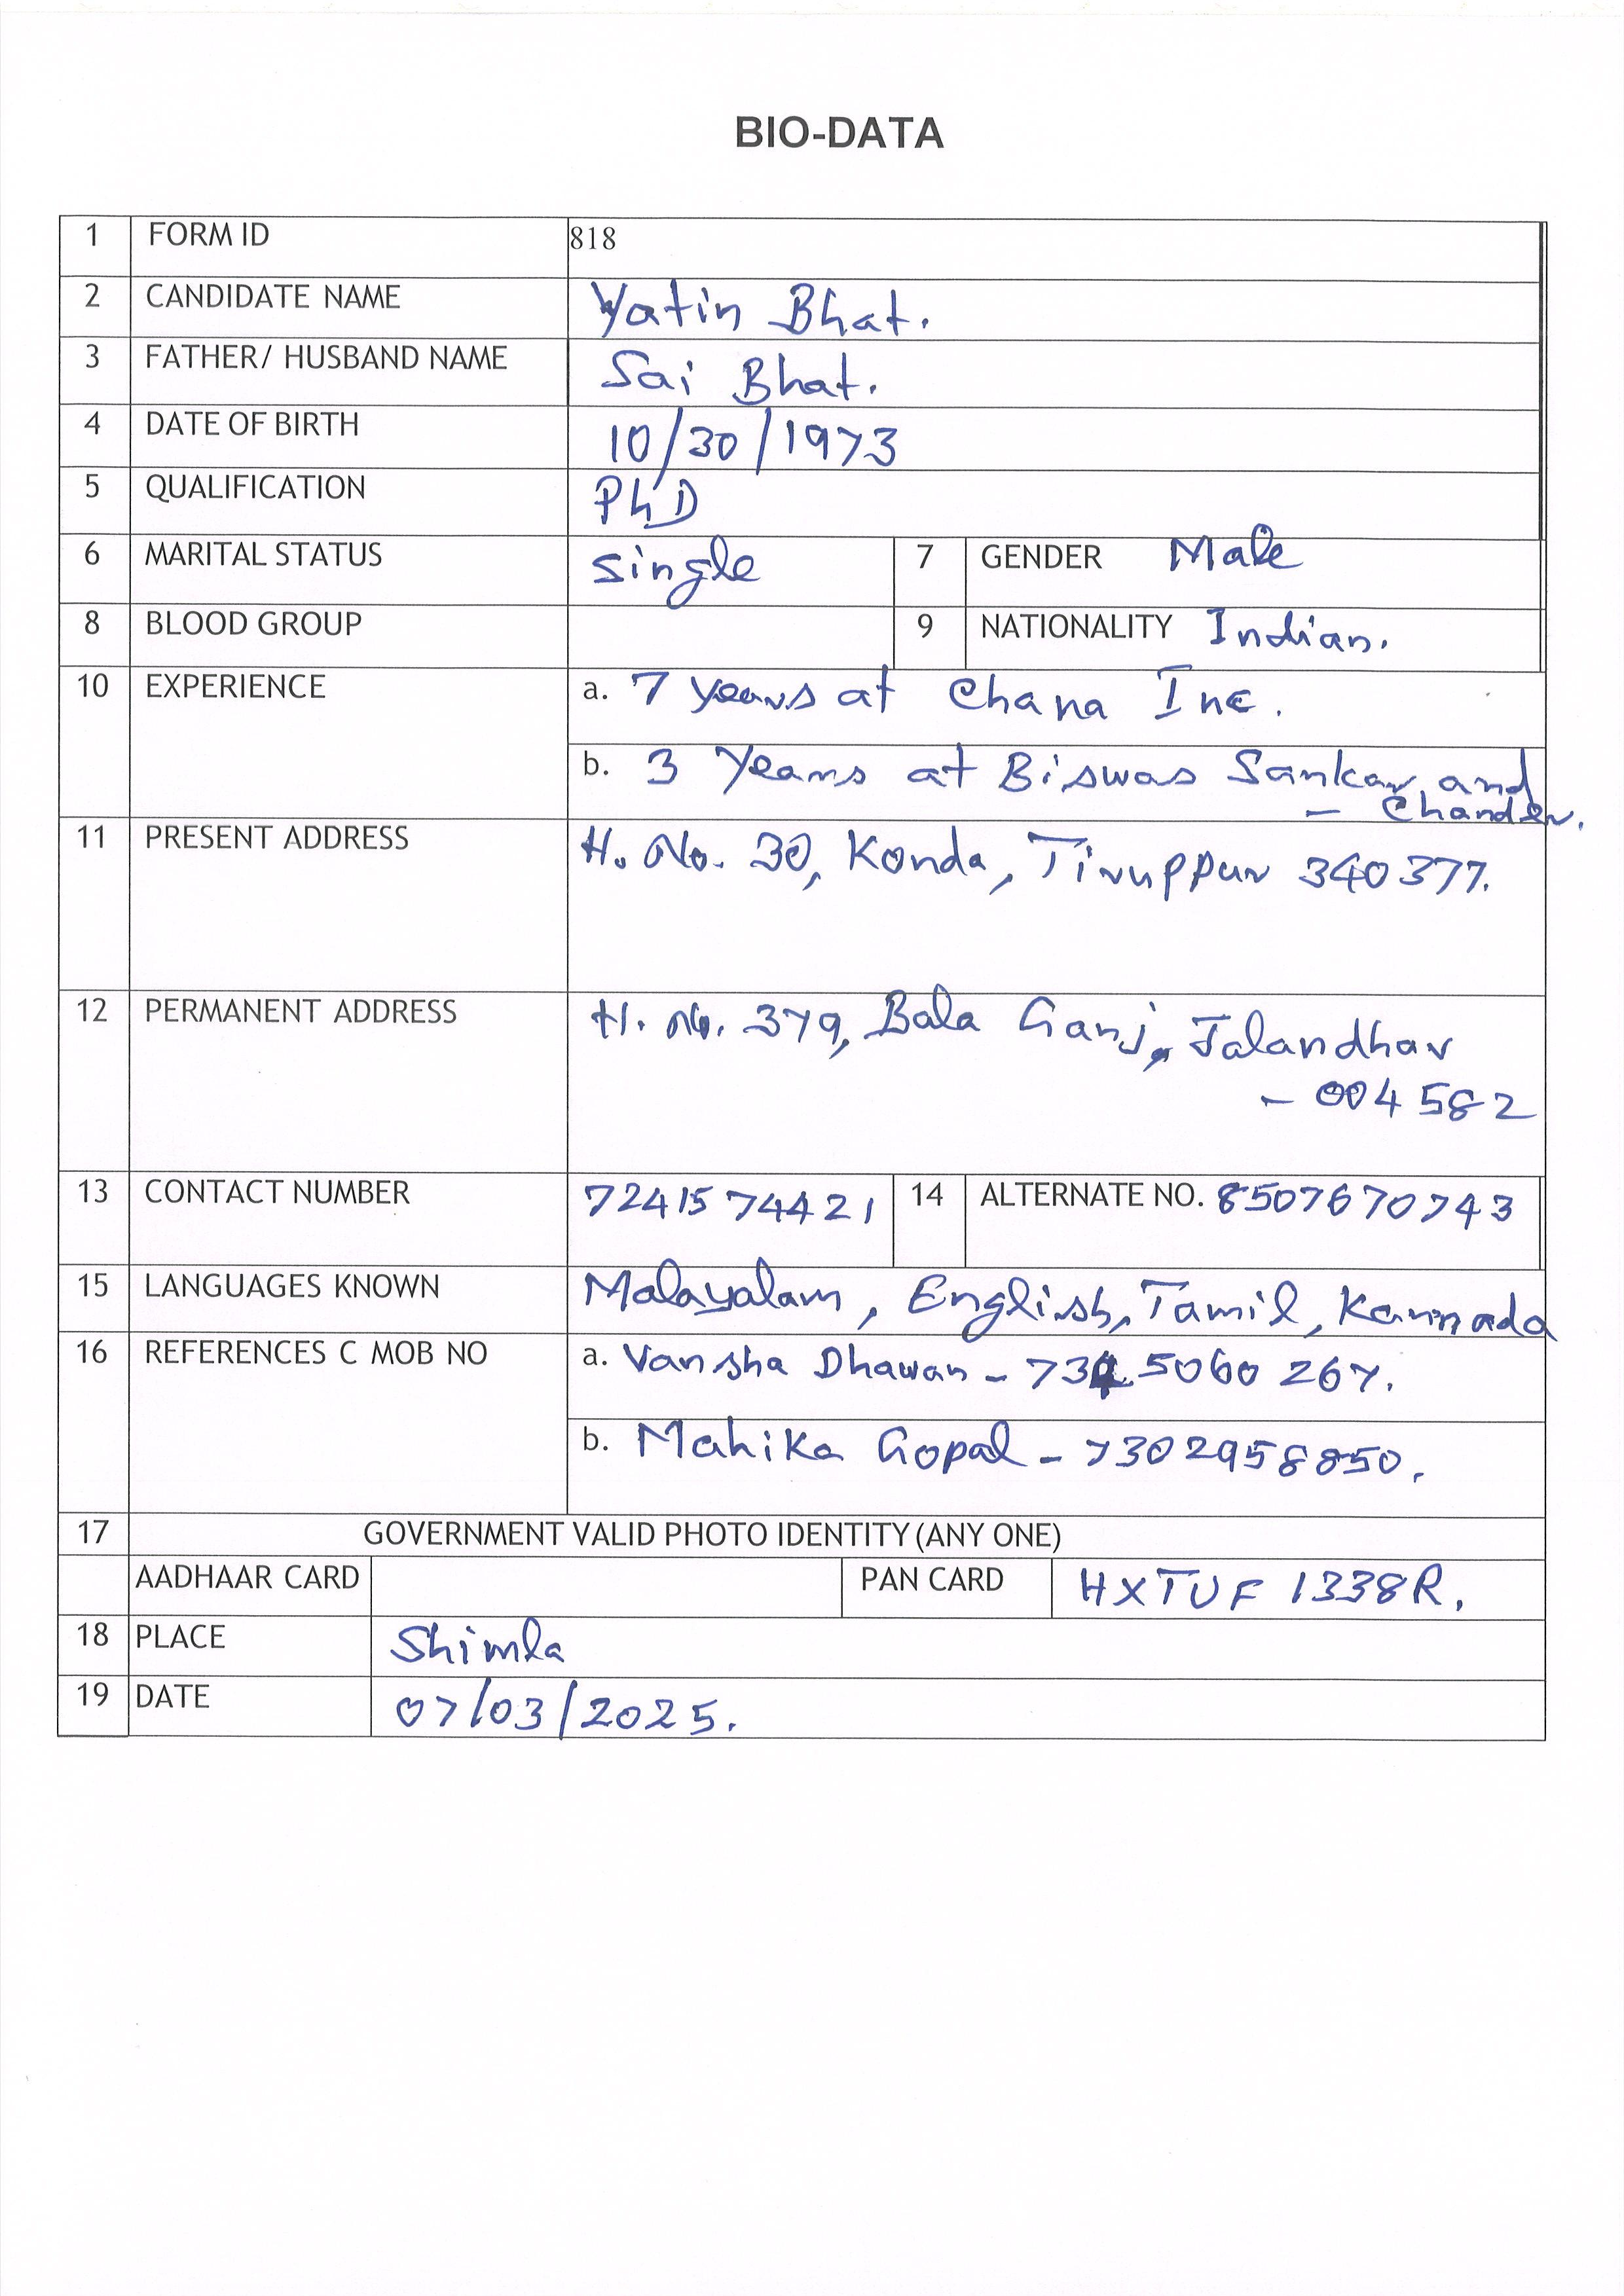 BIO-DATA
1 FORM ID 818
2 CANDIDATE NAME Yatin Bhat.
3 FATHER/ HUSBAND NAME Sai Bhat.
4 DATE OF BIRTH 10/30/1973
5 QUALIFICATION PhD
6 MARITAL STATUS single 7 GENDER Male
8 BLOOD GROUP 9 NATIONALITY Indian.
10 EXPERIENCE a. 7 years at Chana Inc.
b. 3 Years at Biswas Sankar and
- Chander.
11 PRESENT ADDRESS H. No. 30, Konda, Tiruppur 340377.
12 PERMANENT ADDRESS H. No. 379, Bala Ganj, Jalandhar
- 004582
13 CONTACT NUMBER 7241574421 14 ALTERNATE NO. 8507670743
15 LANGUAGES KNOWN Malayalam, English, Tamil, Kannada
16 REFERENCES C MOB NO a. Vansha Dhawan - 7345060267.
b. Mahika Gopal - 7302958850.
17 GOVERNMENT VALID PHOTO IDENTITY (ANY ONE)
AADHAAR CARD PAN CARD HXTUF1338R.
18 PLACE Shimla
19 DATE 07/03/2025.